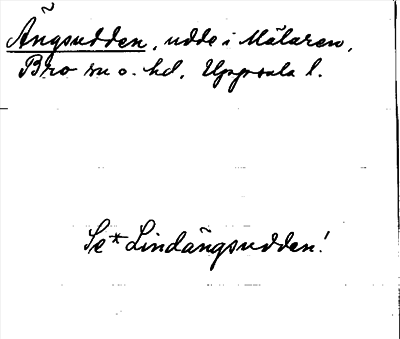 Ängsudden, udde i Mälaren,
Bro sn o. hd, Uppsala l.
Se* Lindängsudden!